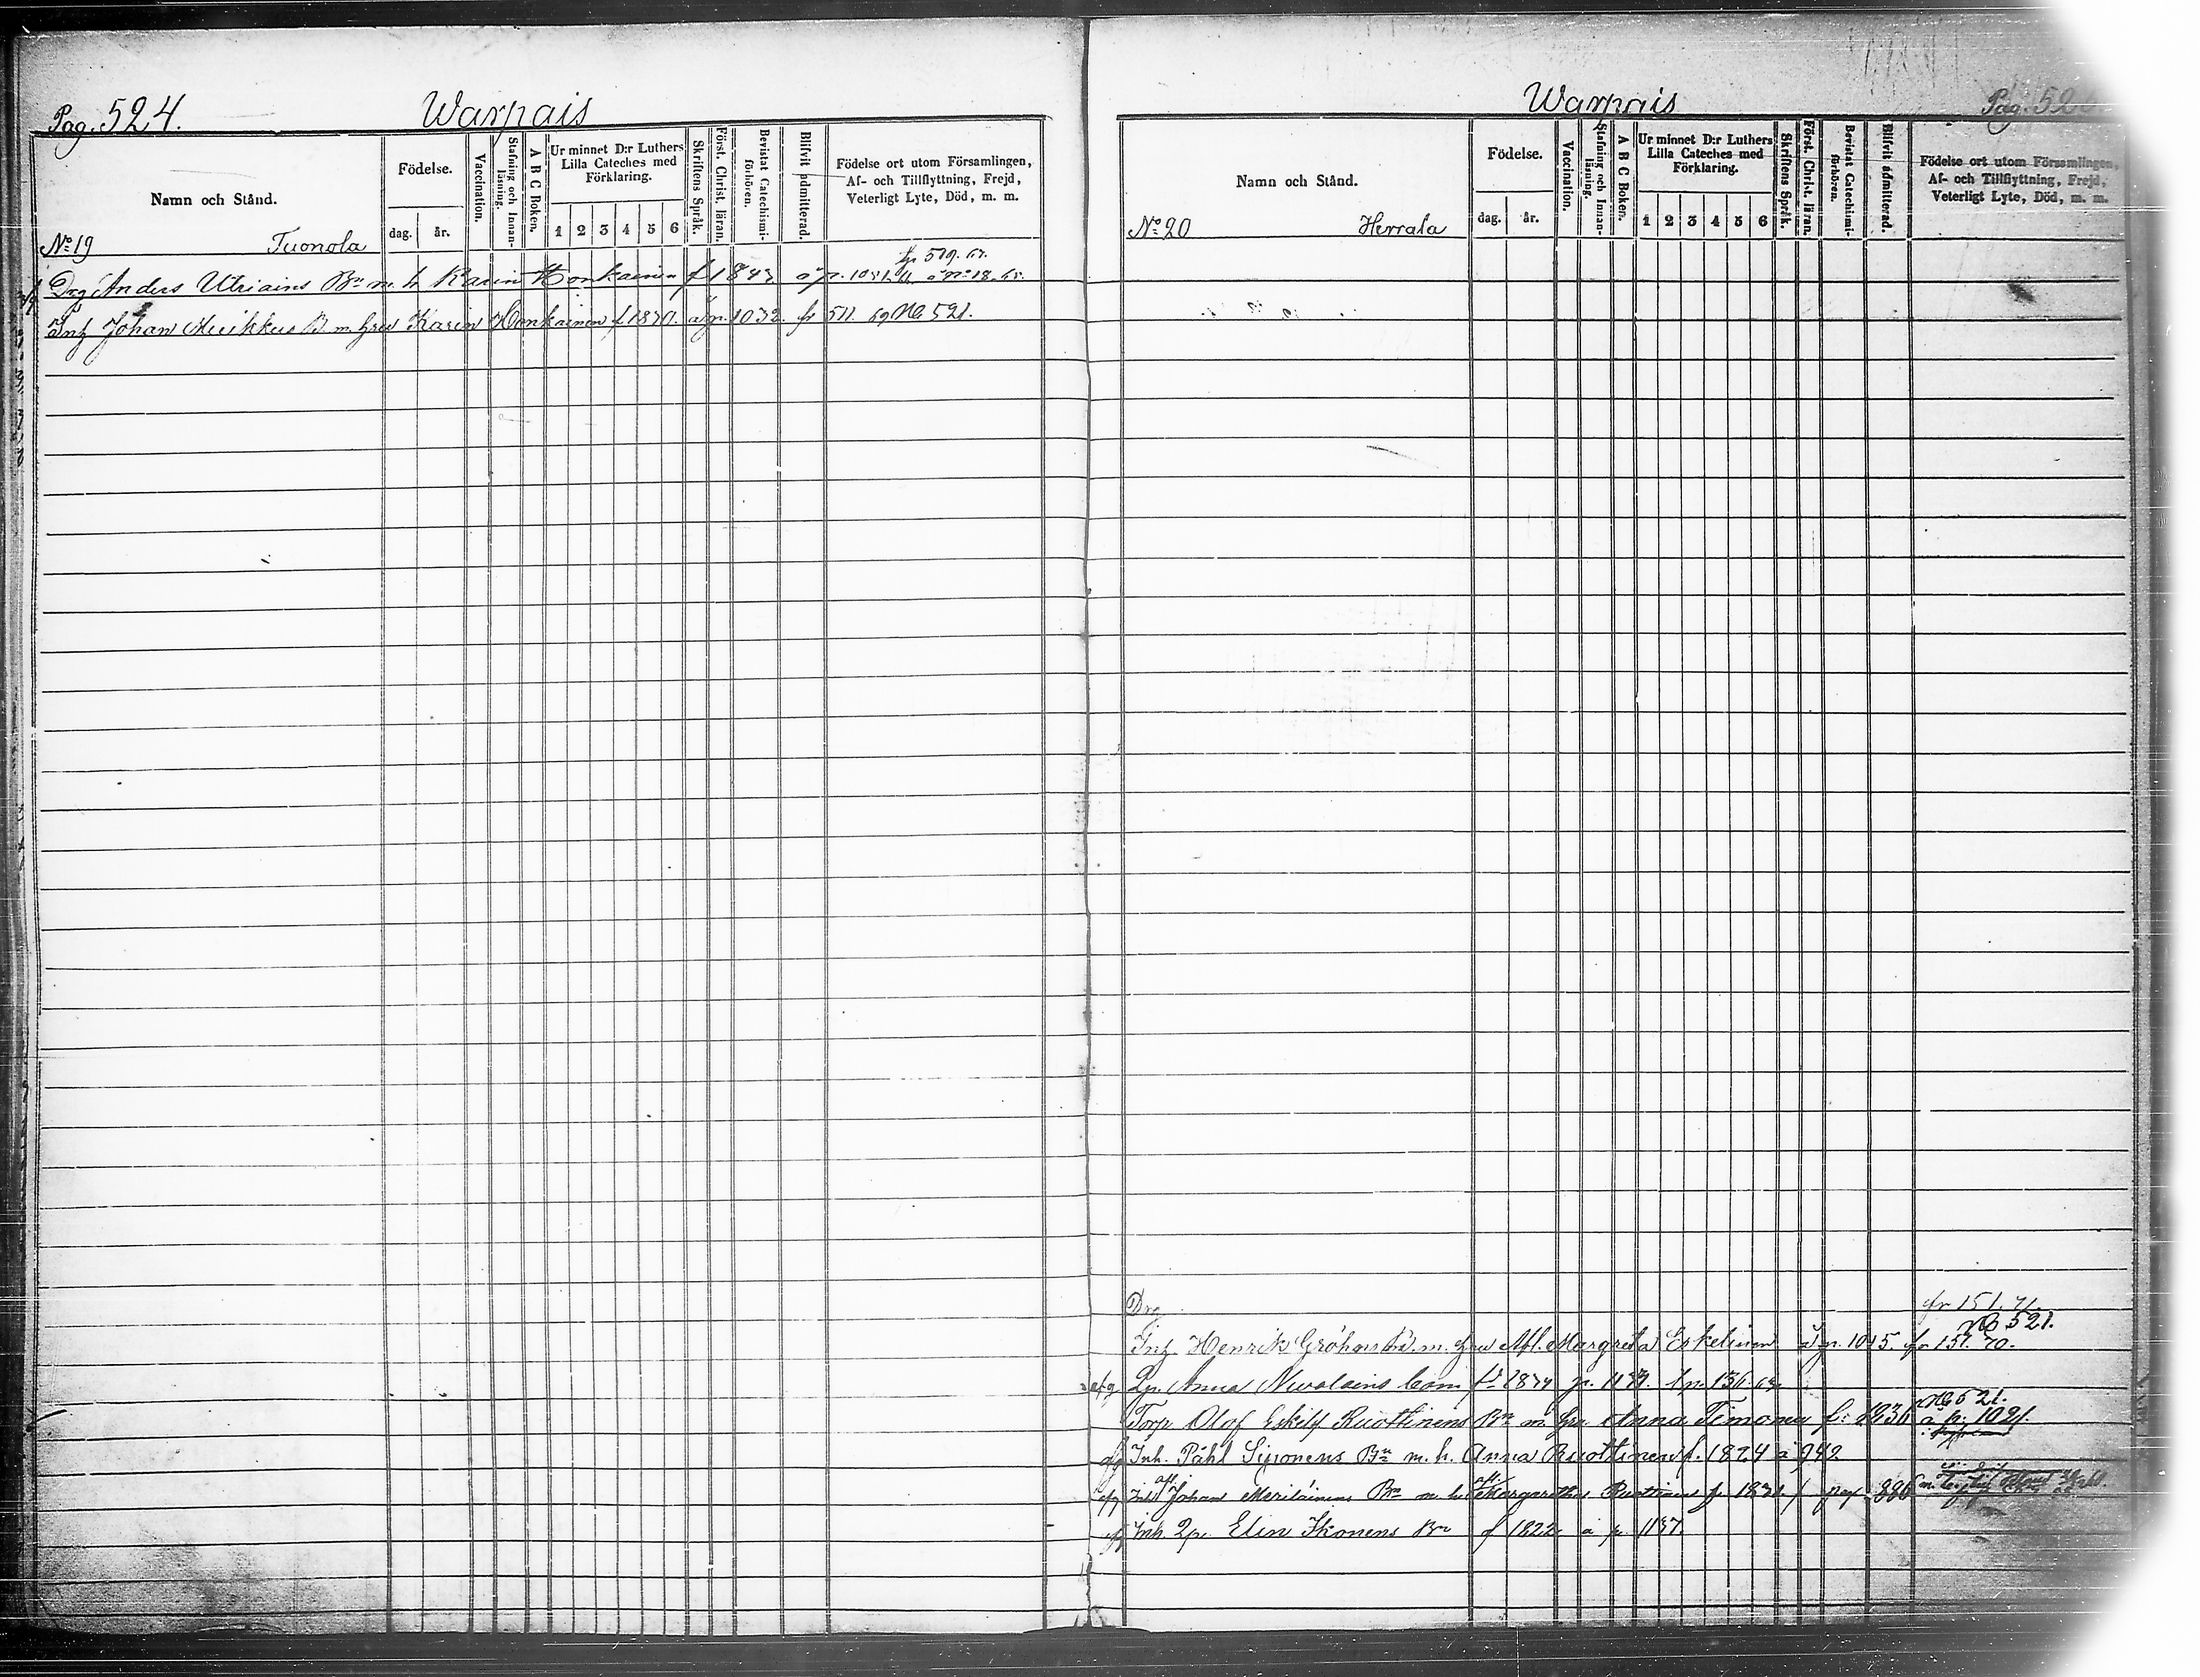 Pag. 524.
Warpais
Namn och Stånd.
Födelse.
dag.
år.
Vaccination.
Stafning och Innan-
läsning.
A B C Boken.
Ur minnet D:r Luthers
Lilla Cateches med
Förklaring.
1 2 3 4 5 6
Skriftens Språk.
Först. Christ. läran.
Bevistat Catechismi-
förhören.
Blifvit admitterad.
Födelse ort utom Församlingen,
Af- och Tillflyttning, Frejd,
Veterligt Lyte, Död, m. m.
No 19 Tuonola
Drg Anders Utriains Bn m. h Karin Honkainen f 1843
Inh Johan Muikkus B. m. hru Karin Honkainen f. 1830. å p. 1032 fr 511 69 No 521.
Warpais
Namn och Stånd.
Födelse.
dag.
år.
Vaccination.
Stafning och Innan-
läsning.
A B C Boken.
Ur minnet D:r Luthers
Lilla Cateches med
Förklaring.
1 2 3 4 5 6
Skriftens Språk.
Först. Christ. läran.
Bevistat Catechismi-
förhören.
Blifvit admitterad.
Födelse ort utom Församlingen,
Af- och Tillflyttning, Frejd,
Veterligt Lyte, Död, m. m.
No 20 Herrala
Drg fr 151. 71.
No 521.
Inh Henrik Gröhns Bn. m. hru Margreta Eskelinen å p. 1045. fr 151. 70.
Anna
No 521.
Torp Olof Eskilss Ruottinens Bn m. hru Anna Timonen f: 1836 å p. 1021.
Inh. Påhl Siponens Bn m. h. Anna Ruottinen f. 1824 å 942.
Johan Meriläinens Bn m. h. Margaretha pag. 886
Inh Elin Ikonens Bn f 1822 å p. 1137.